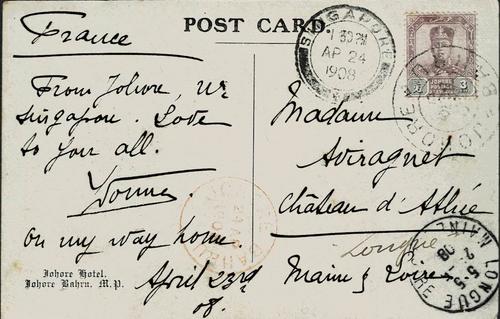 POST CARD
France
From Johore, nr
Singapore. Love
to you all.
Yonne
on my way home.
April 23rd
08.
Johore Hotel.
Johore Bahru. M.P.
Madame
Aviragnet
Château d'Athée
Longué
Maine & Loire
SINGAPORE
1 30 PM
AP 24
1908
JOHORE
3
JOHORE
LONGUÉ
5-5
08
MAINE